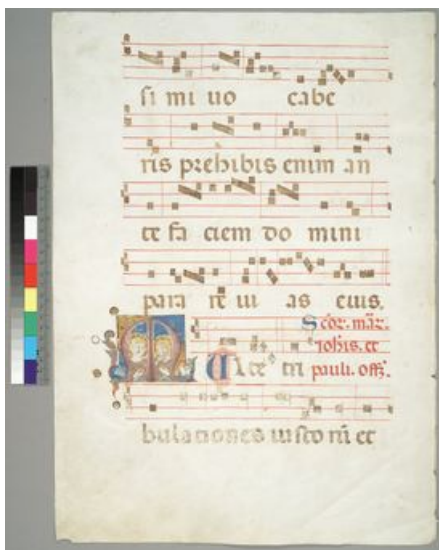 si mi uo cabe
ris prehibis enim an
te fa ciem do mini
para re ui as eius.
Scor̄. mār̄.
iohīs. et
M Ulte tri pauli. off̄.
bulationes iusto rū et